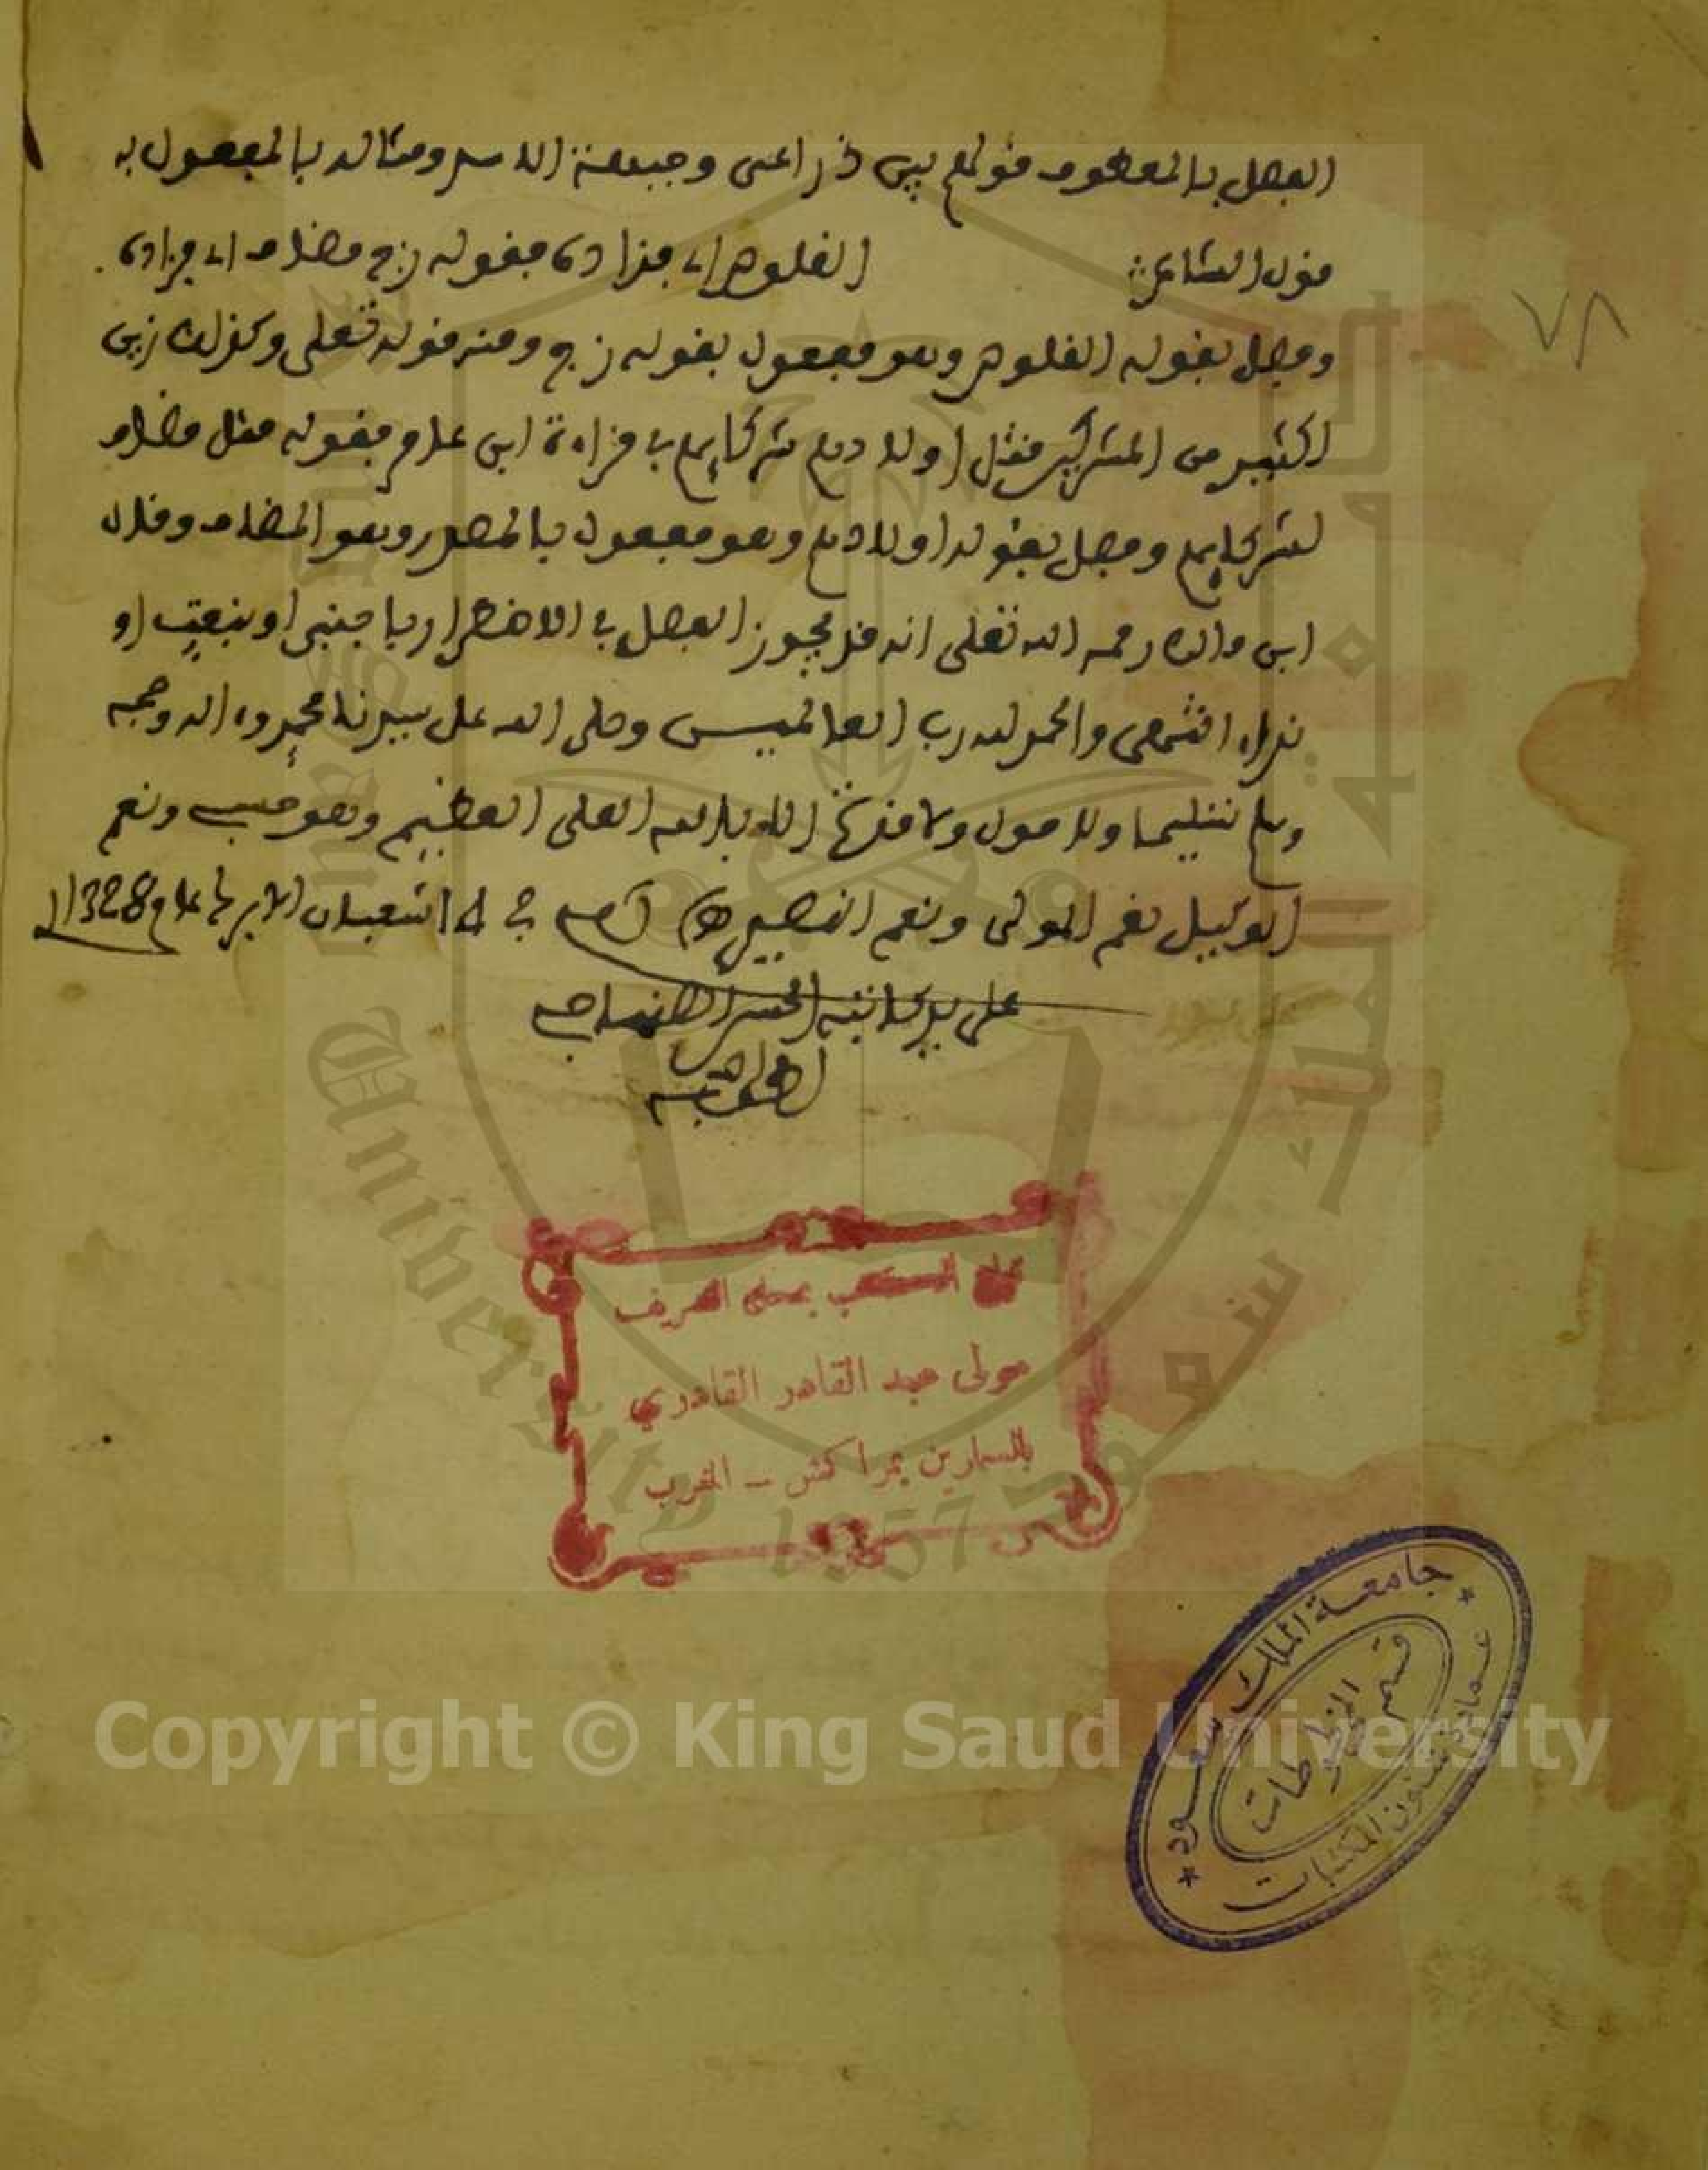 الفصل بالمعطوف قولهم بين ذراعي وجبهة الاسد ومثاله بالمفعول به
قول الشاعر:
القلوص ابي مزادة فقوله زج مضاف ابي مزادة
وفصل بقوله القلوص وهو مفعول بقوله زج ومنه قوله تعلى وكذلك زين
لكثير من المشركين قتل اولادهم شركايهم في قراءة ابن عامر فقوله قتل مضاف
لشركايهم وفصل بقوله اولادهم وهو مفعول بالمصدر وهو المضاف وقال
ابن مالك رحمه الله تعلى انه قد يجوز الفصل في الاضطرار باجنبي او بنعت او
نداء انتهى والحمد لله رب العالمين وصلى الله على سيدنا محمد وءاله وصحبه
وسلم تسليما ولا حول ولا قوة الا بالله العلي العظيم وهو حسبي ونعم
الوكيل نعم المولى ونعم النصير اه امين في 14 شعبان الابرك عام 1328
على يد كاتبه الحسن
٧٨
بمحل الشريف
مولى عبد القادر القادري
بالسمارين بمراكش – المغرب
جامعة الملك سعود
قسم المخطوطات
عمادة شئون المكتبات
Copyright © King Saud University
University 1957